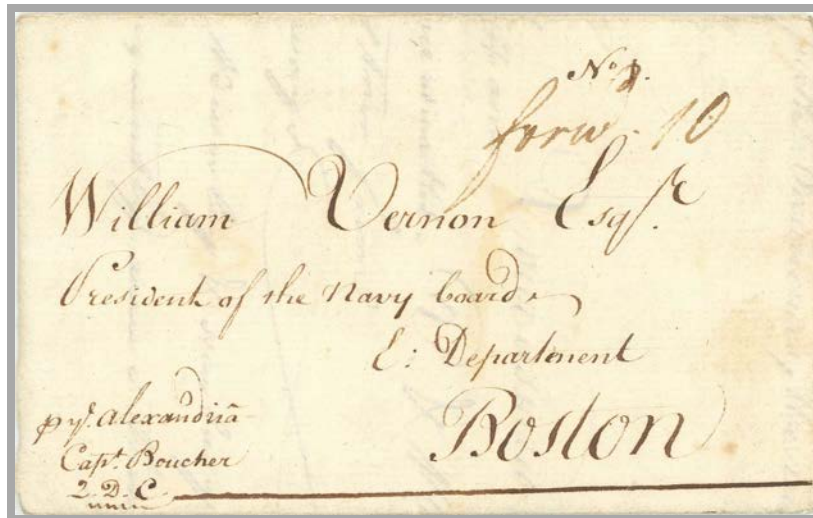 No. 8.
forw. 10
William Vernon Esqr.
President of the Navy board
E: Department
Boston
py. alexandria
Capt. Boucher
2. D. C.